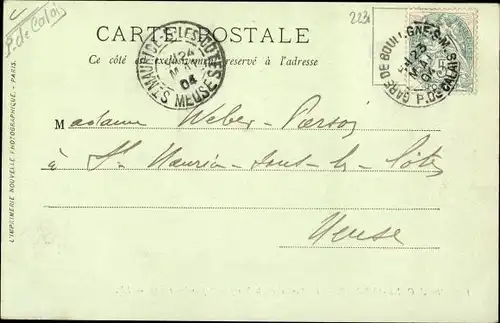 P. de Calais
2221
CARTE POSTALE
Ce côté est exclusivement réservé à l'adresse
ST MAURICE S LES COTES
24
MAI
04
MEUSE
GARE DE BOULOGNE-S-M.
23
MAI
04
P. DE CALAIS
L'IMPRIMERIE NOUVELLE PHOTOGRAPHIQUE. - PARIS.
Madame Weber-Persoz
à St. Maurice-sous-les Côtes
Meuse